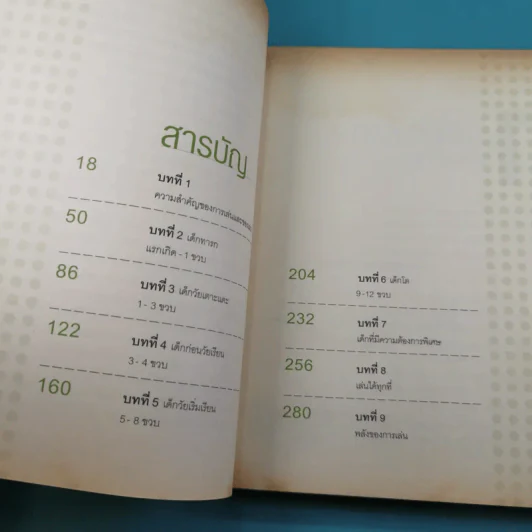 สารบัญ
18
บทที่ 1
ความสำคัญของการเล่นและของเล่น
50
บทที่ 2 เด็กทารก
แรกเกิด - 1 ขวบ
86
บทที่ 3 เด็กวัยเตาะแตะ
1 - 3 ขวบ
122
บทที่ 4 เด็กก่อนวัยเรียน
3 - 4 ขวบ
160
บทที่ 5 เด็กวัยเริ่มเรียน
5 - 8 ขวบ
204
บทที่ 6 เด็กโต
9 -12 ขวบ
232
บทที่ 7
เด็กที่มีความต้องการพิเศษ
256
บทที่ 8
เล่นได้ทุกที่
280
บทที่ 9
พลังของการเล่น